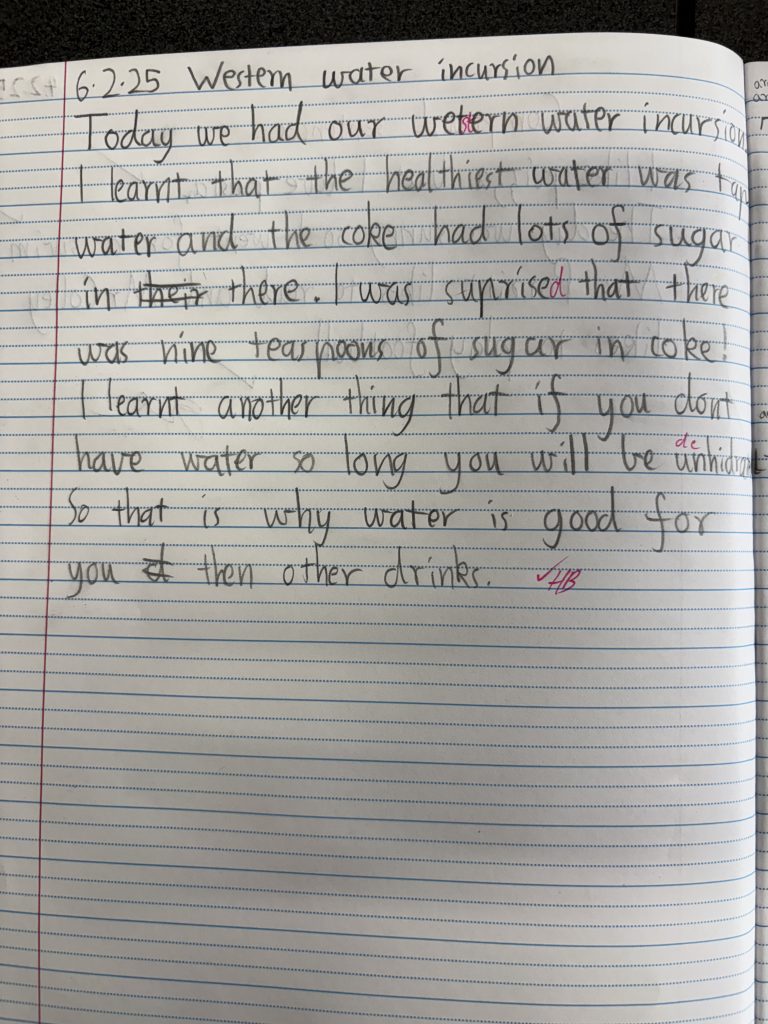 6.2.25 Western water incursion
Today we had our western water incursion
I learnt that the healthiest water was tap
water and the coke had lots of sugar
in their there. I was suprised that there
was nine tearspoons of sugar in coke!
I learnt another thing that if you dont
have water so long you will be unhidrat
de
So that is why water is good for
you then other drinks. ✓HB